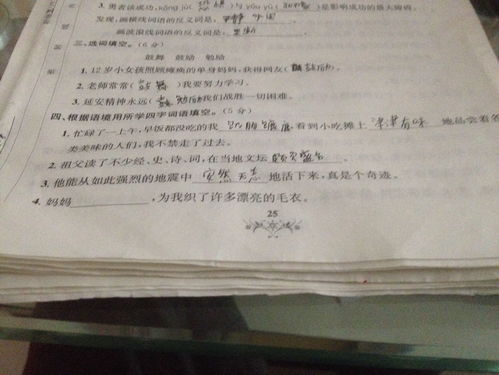 3. 勇者谈成功，kǒng jù( )与yóu yù( )是影响成功的最大障碍。
发现：画横线词语的反义词是：
画波浪线词语的反义词是：
三、选词填空。(6分)
鼓舞 鼓励 勉励
1. 12岁小女孩照顾瘫痪的单身妈妈，获得网友( )。
2. 老师常常(鼓舞)我要努力学习。
3. 延安精神永远(勉励)我们战胜一切困难。
四、根据语境用所学四字词语填空。(5分)
1. 忙碌了一上午，早饭都没吃的我饥肠辘辘，看到小吃摊上津津有味地品尝着各
类美味的人们，我不禁走了过去。
2. 祖父读了不少经、史、诗、词，在当地文坛颇负盛名。
3. 他能从如此强烈的地震中安然无恙地活下来，真是个奇迹。
4. 妈妈，为我织了许多漂亮的毛衣。
25